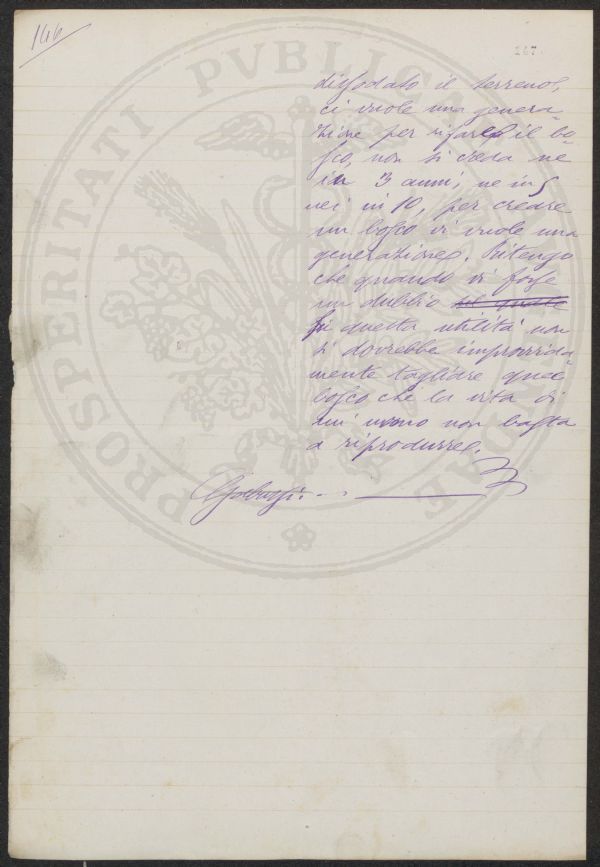 146
147
dissodato il terreno,
ci vuole una genera-
zione per rifare il bo-
sco, non si creda nè
in 3 anni, ne in 5
nei in 10, per creare
un bosco vi vuole una
generazione. Ritengo
che quando vi fosse
un dubbio
di questa utilità non
si dovrebbe improvvida-
mente tagliare quel
bosco che la vita di
un uomo non basta
a riprodurre.
PROSPERITATI PVBLICAE